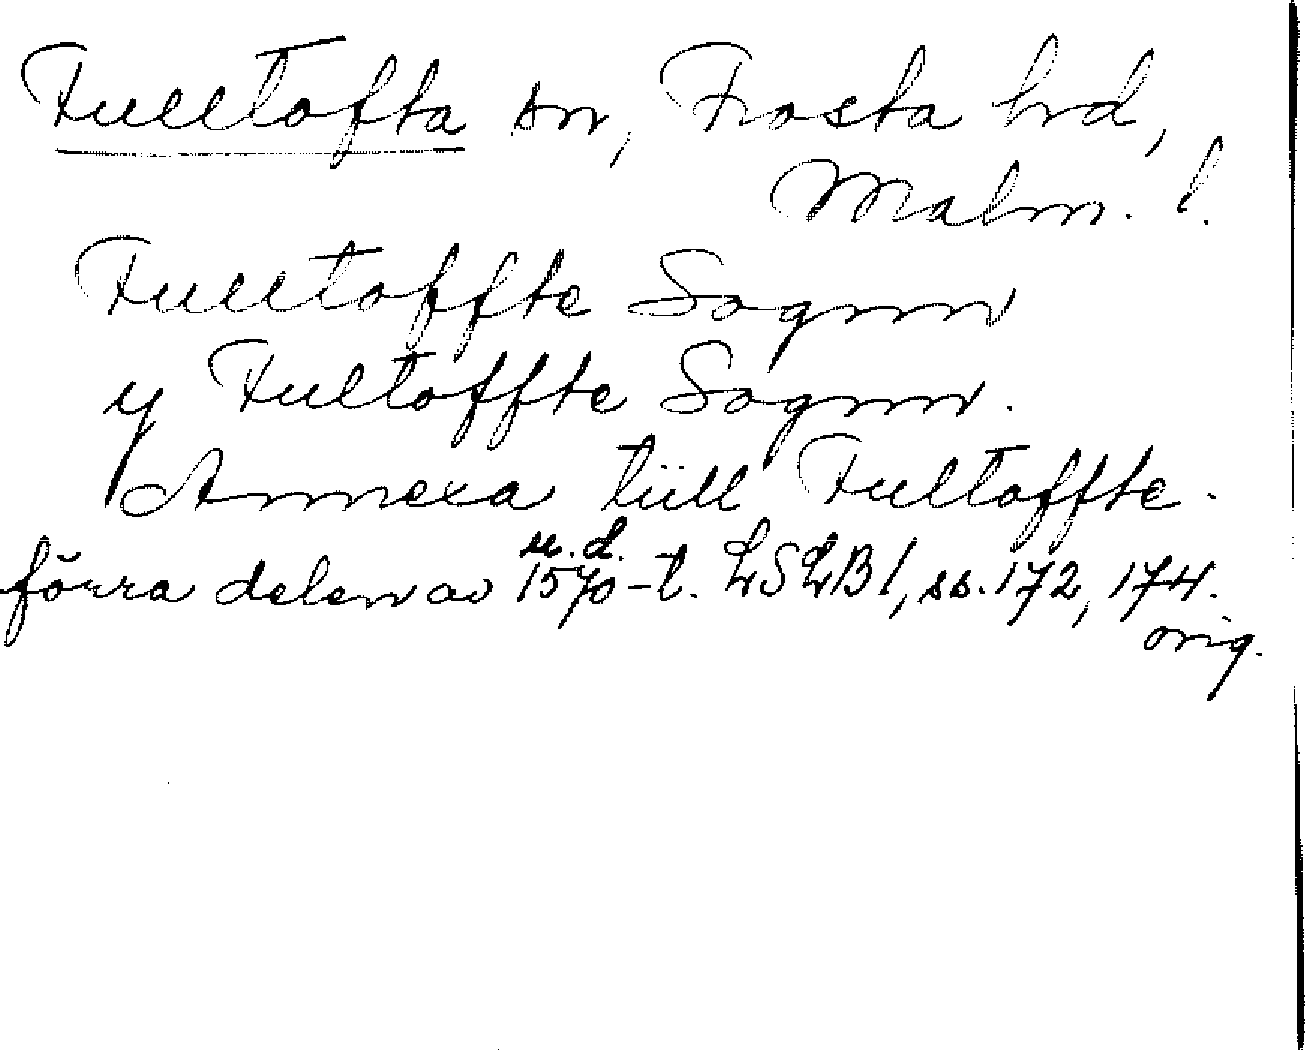 Fulltofta sn, Frosta hd,
Malm. l.
Fulltoffte Sognn
y Fultoffte Sognn.
Annexa tüll Fultoffte.
u. d.
förra delen av 1570-t. LSLB I, ss. 172, 174.
orig.